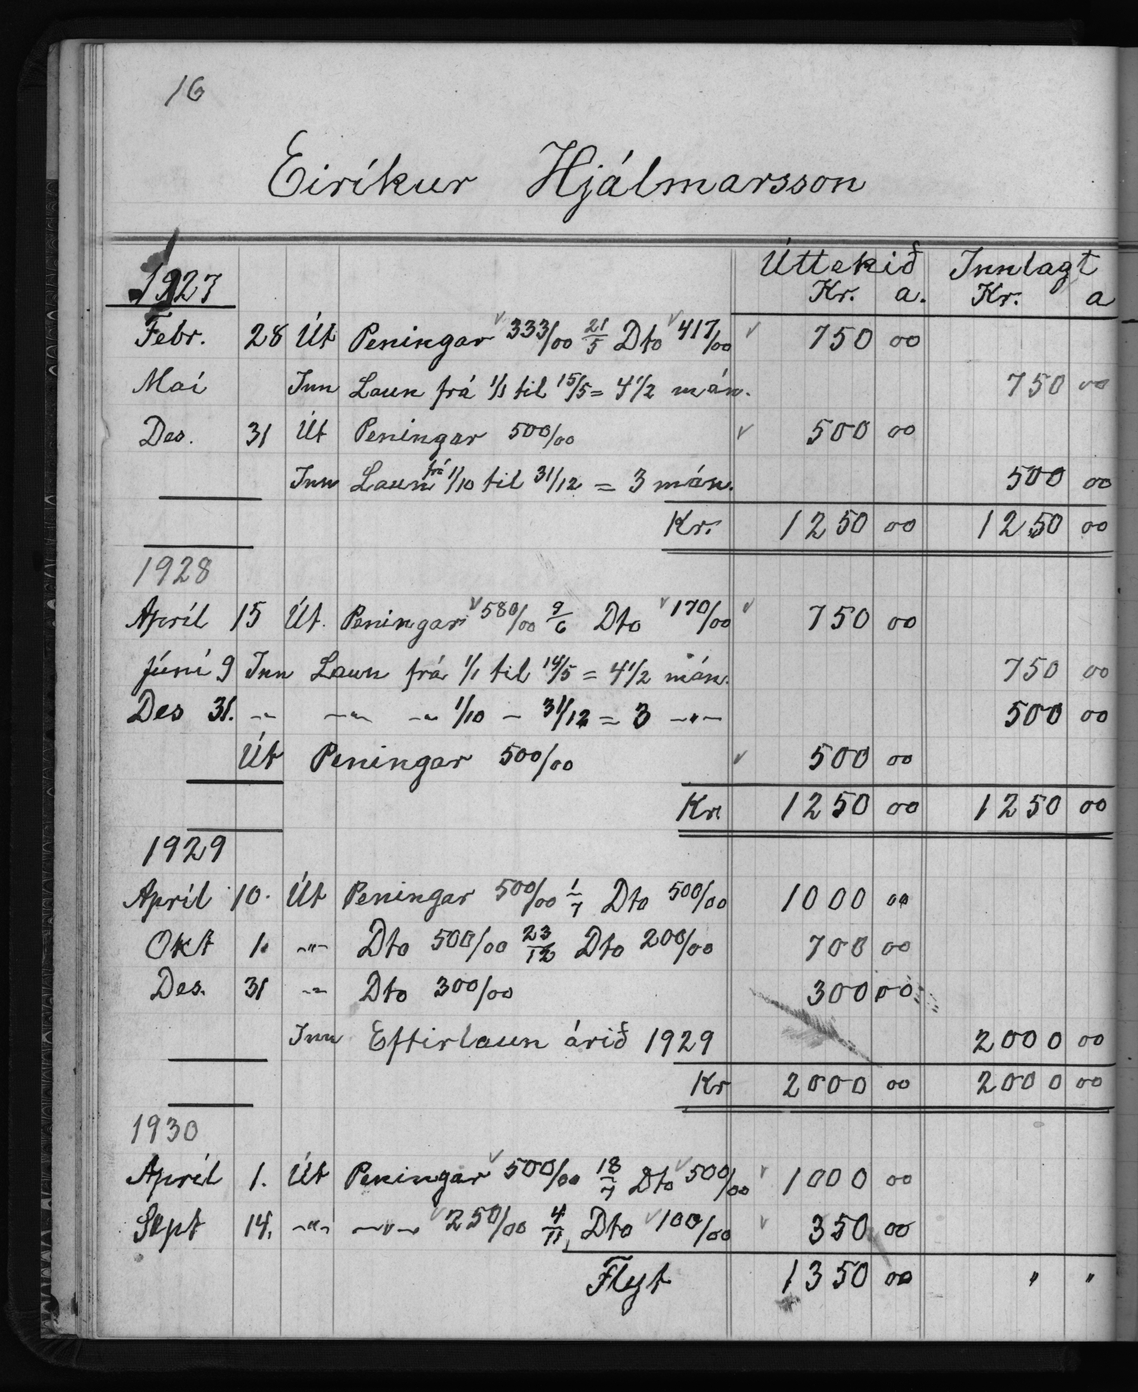 16
Eiríkur Hjálmarsson
1927 Úttekið Innlagt
Kr. a. Kr. a
Febr. 28 Út Peningar 333/00 21/5 Dto 417/00 750 00
Maí Inn Laun frá 1/1 til 15/5 = 4 1/2 mán. 750 00
Des. 31 Út Peningar 500/00 500 00
Inn Laun frá 1/10 til 31/12 = 3 mán. 500 00
Kr. 1250 00 1250 00
1928
Apríl 15 Út. Peningar 580/00 9/6 Dto 170/00 750 00
Júní 9 Inn Laun frá 1/1 til 14/5 = 4 1/2 mán. 750 00
Des 31. -"- -"- -"- 1/10 - 31/12 = 3 -"- 500 00
Út Peningar 500/00 500 00
Kr 1250 00 1250 00
1929
Apríl 10. Út Peningar 500/00 1/7 Dto 500/00 1000 00
Okt 1. -"- Dto 500/00 23/12 Dto 200/00 700 00
Des. 31 -"- Dto 300/00 300 00
Inn Eftirlaun árið 1929 2000 00
Kr 2000 00 2000 00
1930
Apríl 1. Út Peningar 500/00 18/7 Dto 500/00 1000 00
Sept 14. -"- -"- 250/00 4/11, Dto 100/00 350 00
Flyt 1350 00 " "